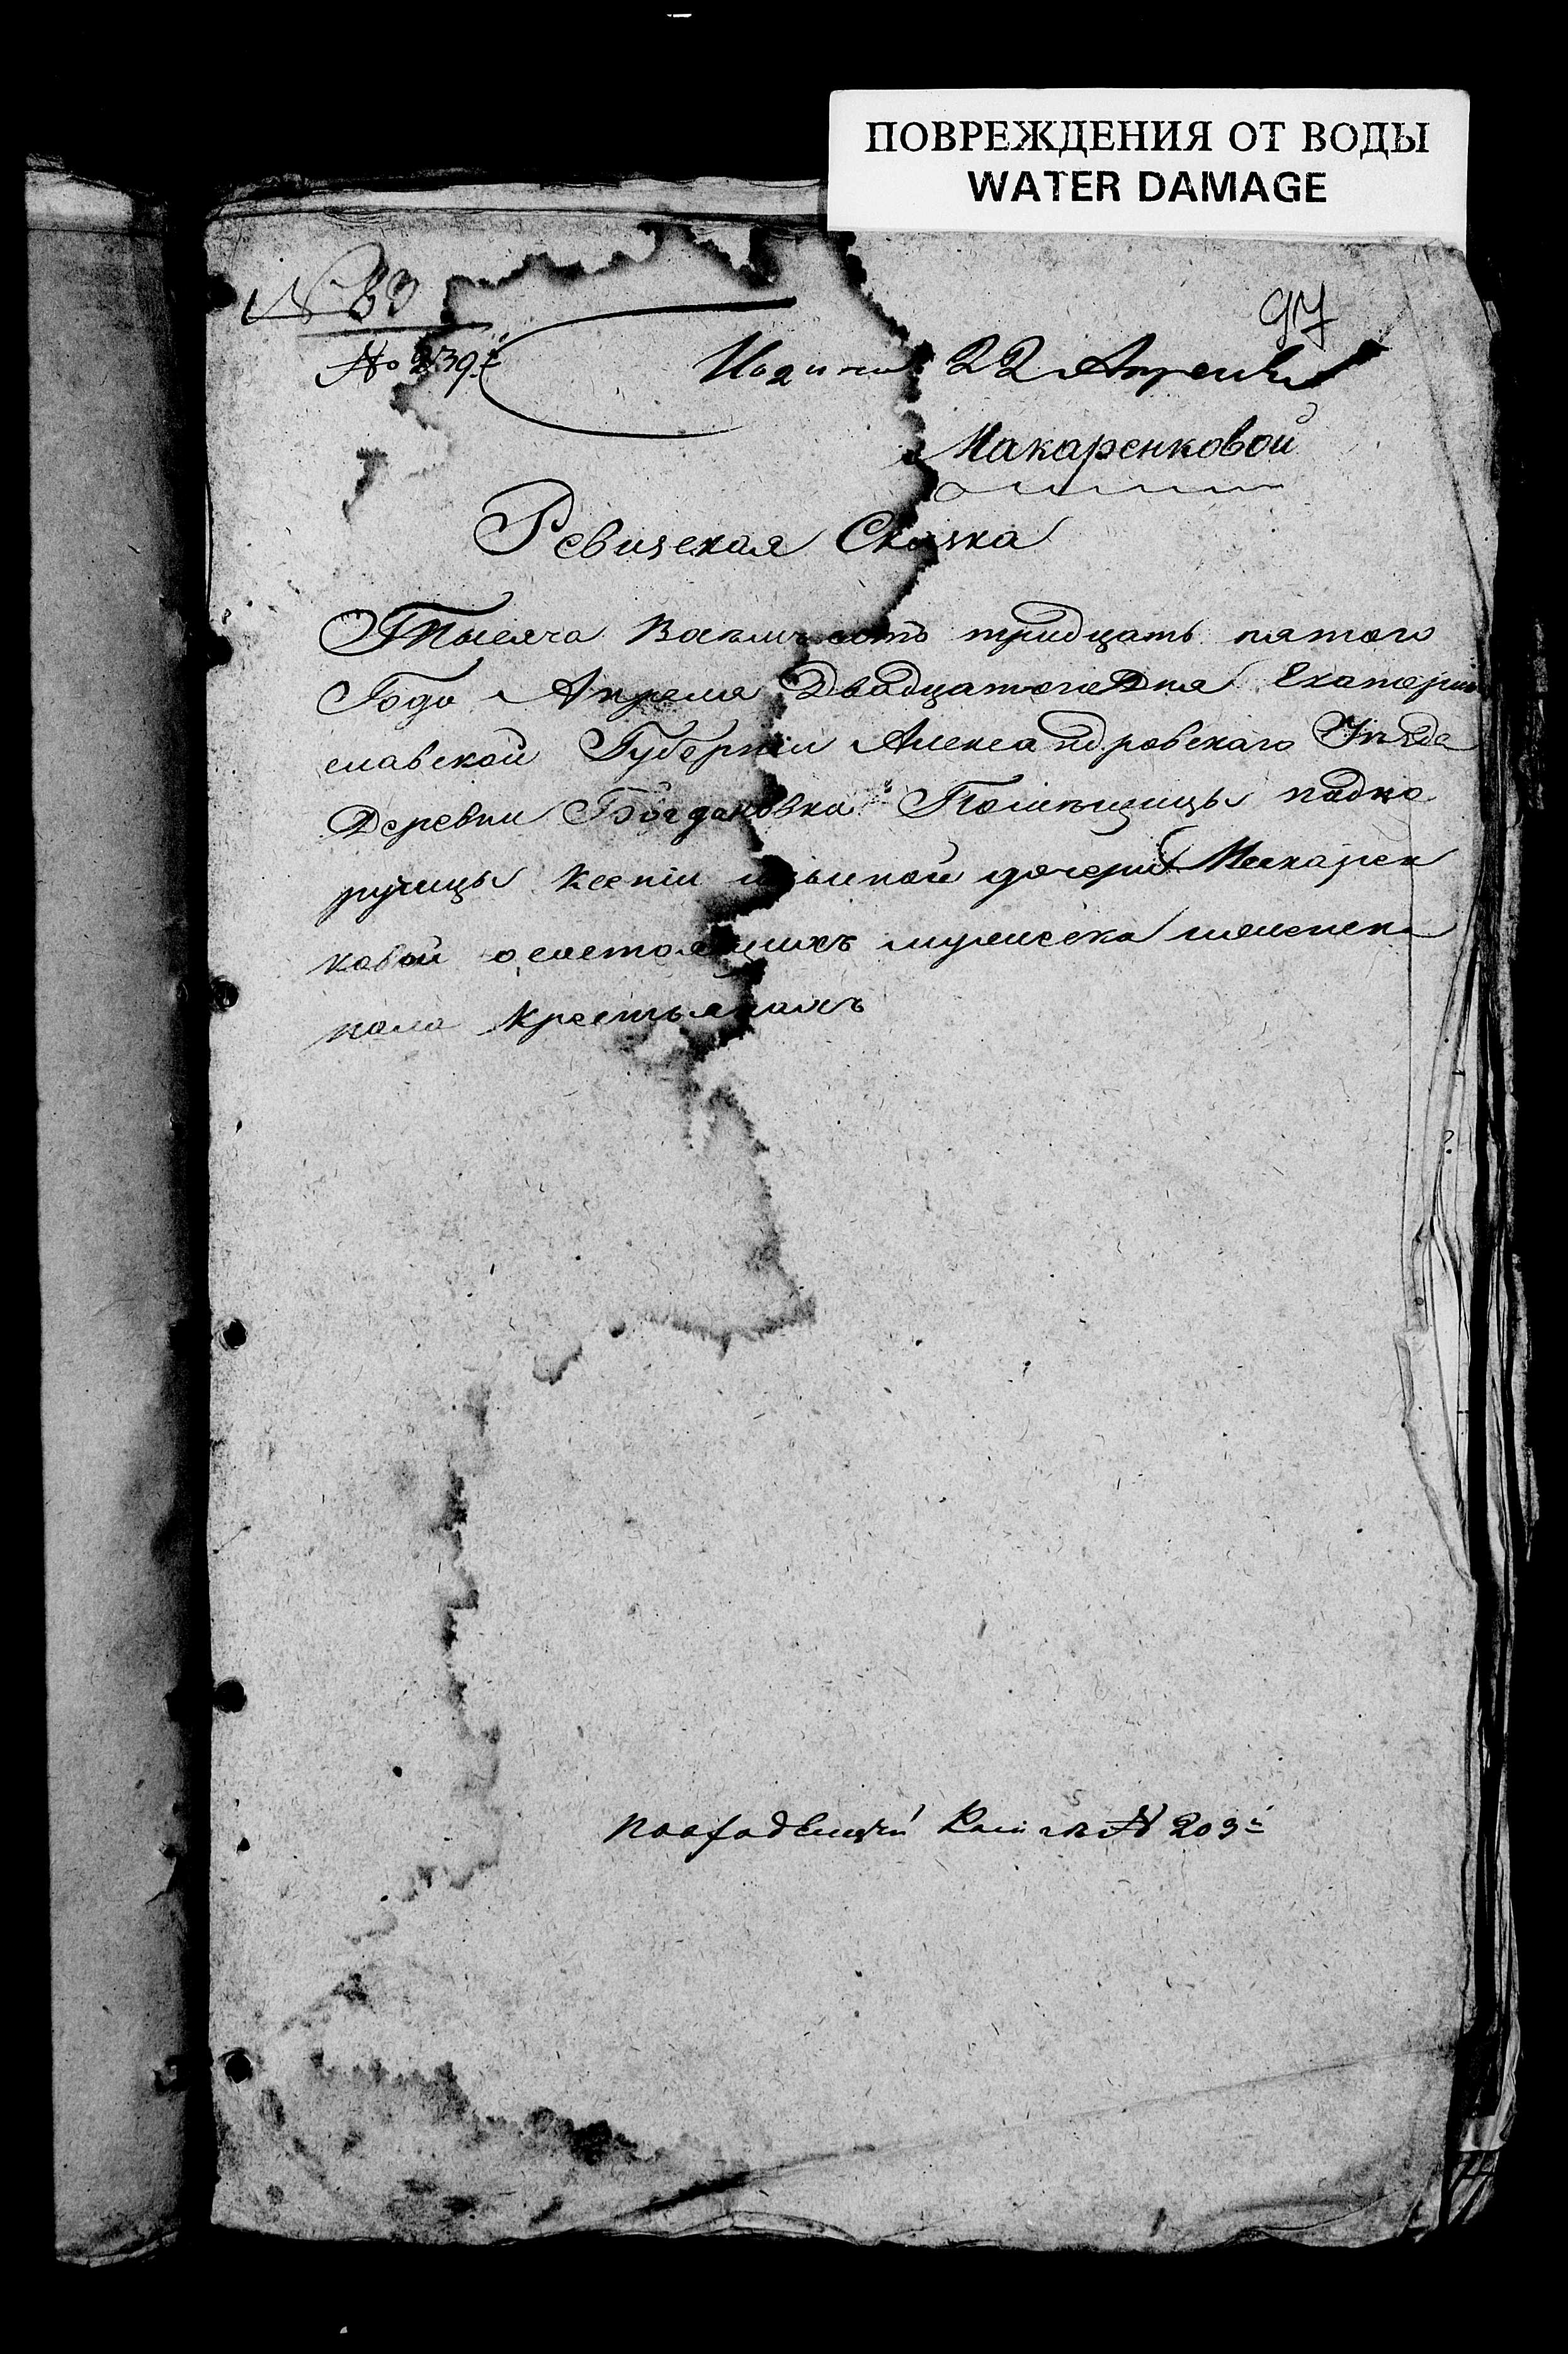 ПОВРЕЖДЕНИЯ ОТ ВОДЫ
WATER DAMAGE
97
№ 83
№ 239
22 Апреля
Макаренковой
Ревизская Сказка
Тысяча Восемьсотъ тридцать пятого
Года Апреля Двадцатого Дня Екатерин
славской Губернии Александровскаго Уезда
Деревни Богдановки Помещицы падпо
ручицы Ксении дочери Макарен
ковой о состоящихъ мужеска женска
пола Крестьянахъ
№ 203